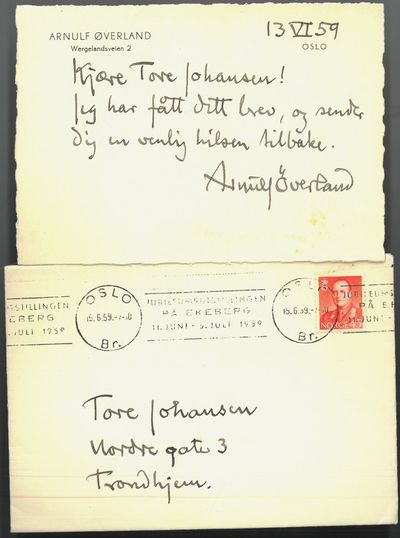 ARNULF ØVERLAND
Wergelandsveien 2
13 VI 59
OSLO
Kjære Tore Johansen!
Jeg har fått ditt brev, og sender
dig en venlig hilsen tilbake.
Arnulf Øverland
OSLO
15.6.59.-7-10
Br.
STILLINGEN
EKEBERG
JULI 1959
JUBILEUMSUTSTILLINGEN
PÅ EKEBERG
11.JUNI - 5.JULI 1959
OSLO
15.6.59.-7-10
Br.
JUBILEUMS
PÅ E
11.JUNI-
NORGE 45
Tore Johansen
Nordre gate 3
Trondhjem.